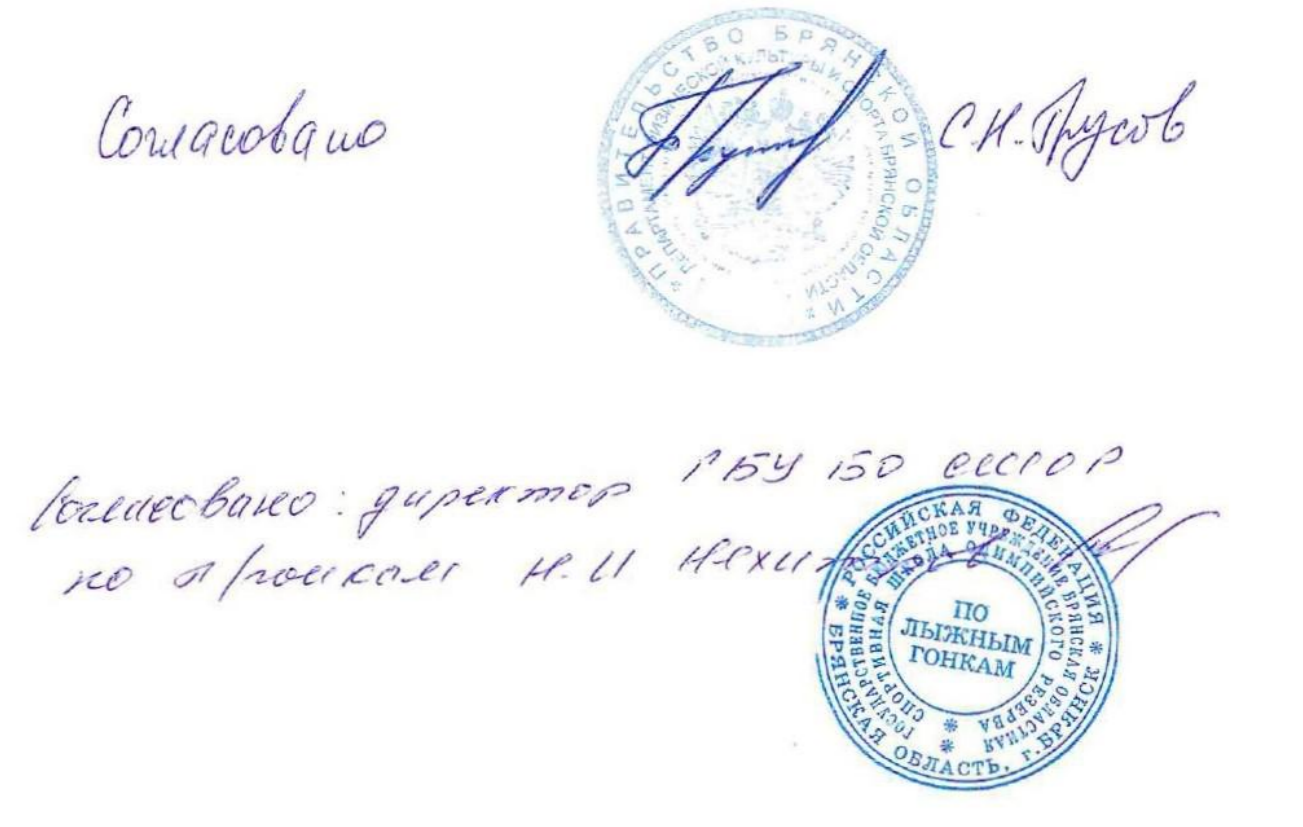 Согласовано
С.Н. Трусов
* ПРАВИТЕЛЬСТВО БРЯНСКОЙ ОБЛАСТИ *
ДЕПАРТАМЕНТ ФИЗИЧЕСКОЙ КУЛЬТУРЫ И СПОРТА БРЯНСКОЙ ОБЛАСТИ
Согласовано: директор ГБУ БО СШОР
по л/гонкам Н.И
* РОССИЙСКАЯ ФЕДЕРАЦИЯ * БРЯНСКАЯ ОБЛАСТЬ, г. БРЯНСК
ГОСУДАРСТВЕННОЕ БЮДЖЕТНОЕ УЧРЕЖДЕНИЕ БРЯНСКАЯ ОБЛАСТНАЯ *
СПОРТИВНАЯ ШКОЛА ОЛИМПИЙСКОГО РЕЗЕРВА *
ПО
ЛЫЖНЫМ
ГОНКАМ